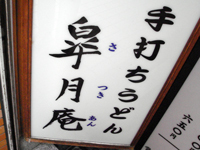 手打ちうどん
皐月庵
さつきあん